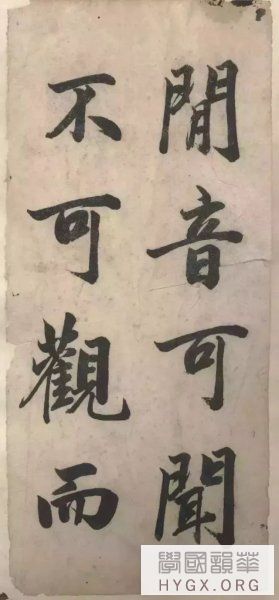 閒音可聞
不可觀而
學國韻華
HYGX.ORG